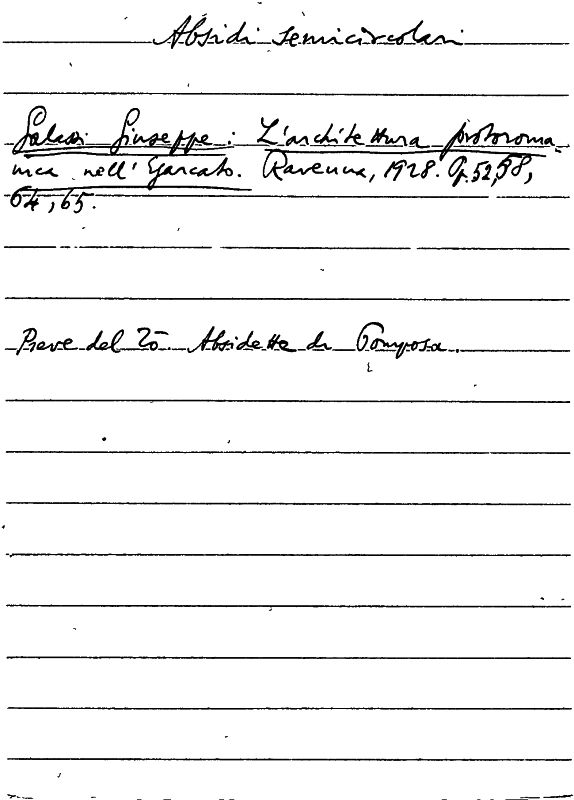 Absidi semicircolari
Galassi Giuseppe: L'architettura protoroma-
nica nell'Esarcato. Ravenna, 1928. Pp. 52, 58,
64, 65.
Pieve del Tō. Absidette di Pomposa.